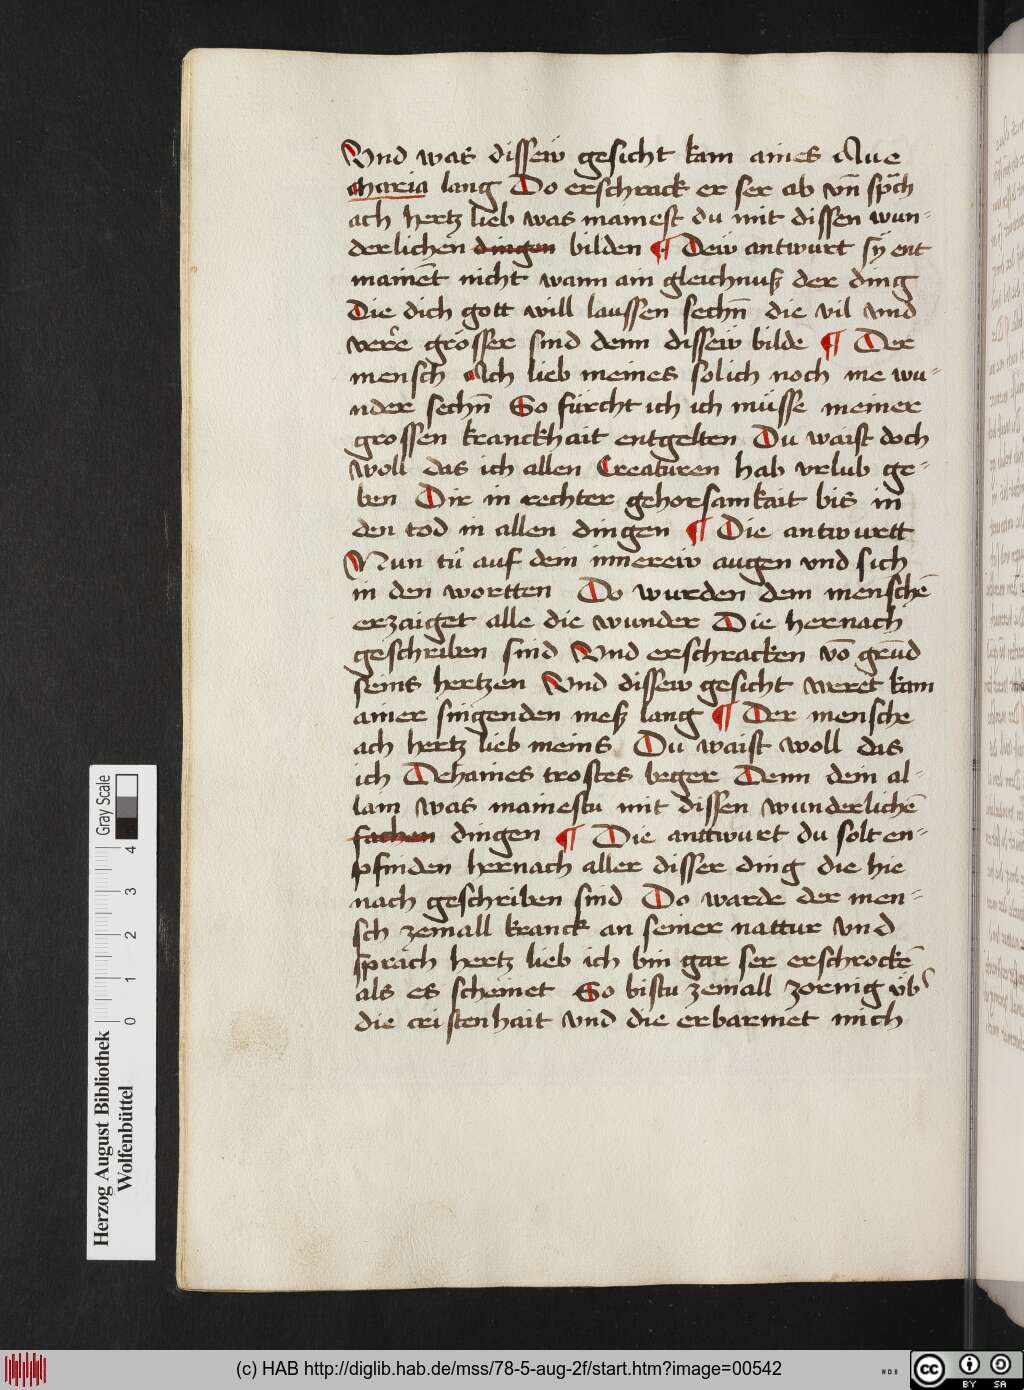 Vnd was dissew gesicht kam aines Aue
Maria lang Do erschrack er ser ab vn̄ sp̄ch
ach hertz lieb was mainest du mit dissen wun⸗
derlichen dingen bilden ¶ Dew antwurt sy ent
mainēt nicht wann ain gleichnuß der ding
Die dich gott will laussen sechn̄ die vil vnd
verˀe grósser sind denn dissew bilde ¶ Der
mensch Ach lieb meines solich noch me wu⸗
nder sechn̄ So fürcht ich ich müsse meiner
grossen kranckhait entgelten Du waist doch
woll das ich allen Creaturen hab vrlub ge⸗
ben Dir in rechter gehorsamkait bis in
den tod in allen dingen ¶ Die antwurtt
Nun tů auf dein innerew augen vnd sich
in den wortten Do wurden dem menschē
erzaiget alle die wunder Die hernach
geschriben sind Vnd erschracken vō grūd
seins hertzen Vnd dissew gesicht weret kam
ainer singenden meß lang ¶ Der mensche
ach hertz lieb meins Du waist woll das
ich Dehaines trostes beger Denn dein al⸗
lain was mainestu mit dissen wunderlichē
sachen dingen ¶ Die anttwurt du solt en⸗
pfinden hernach aller disser ding die hie
nach geschriben sind Do warde der men⸗
sch zemall kranck an seiner nattur vnd
sprach hertz lieb ich bin gar ser erschrockē
als es scheinet So bistu zemall zornig vbˀ
die cristenhait vnd die erbarmet mich
Herzog August Bibliothek
Wolfenbüttel
0 1 2 3 4 Gray Scale
(c) HAB http://diglib.hab.de/mss/78-5-aug-2f/start.htm?image=00542
cc BY SA